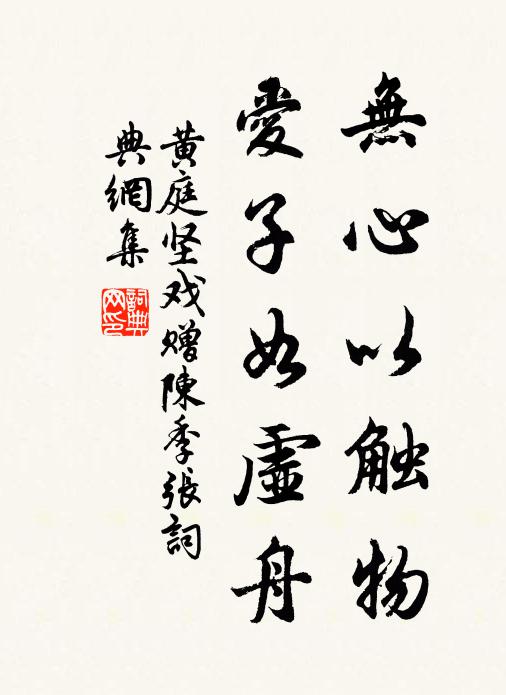 無心以触物
愛子如虛舟
黄庭坚戏赠陳季張詞
典網集
詞典網印